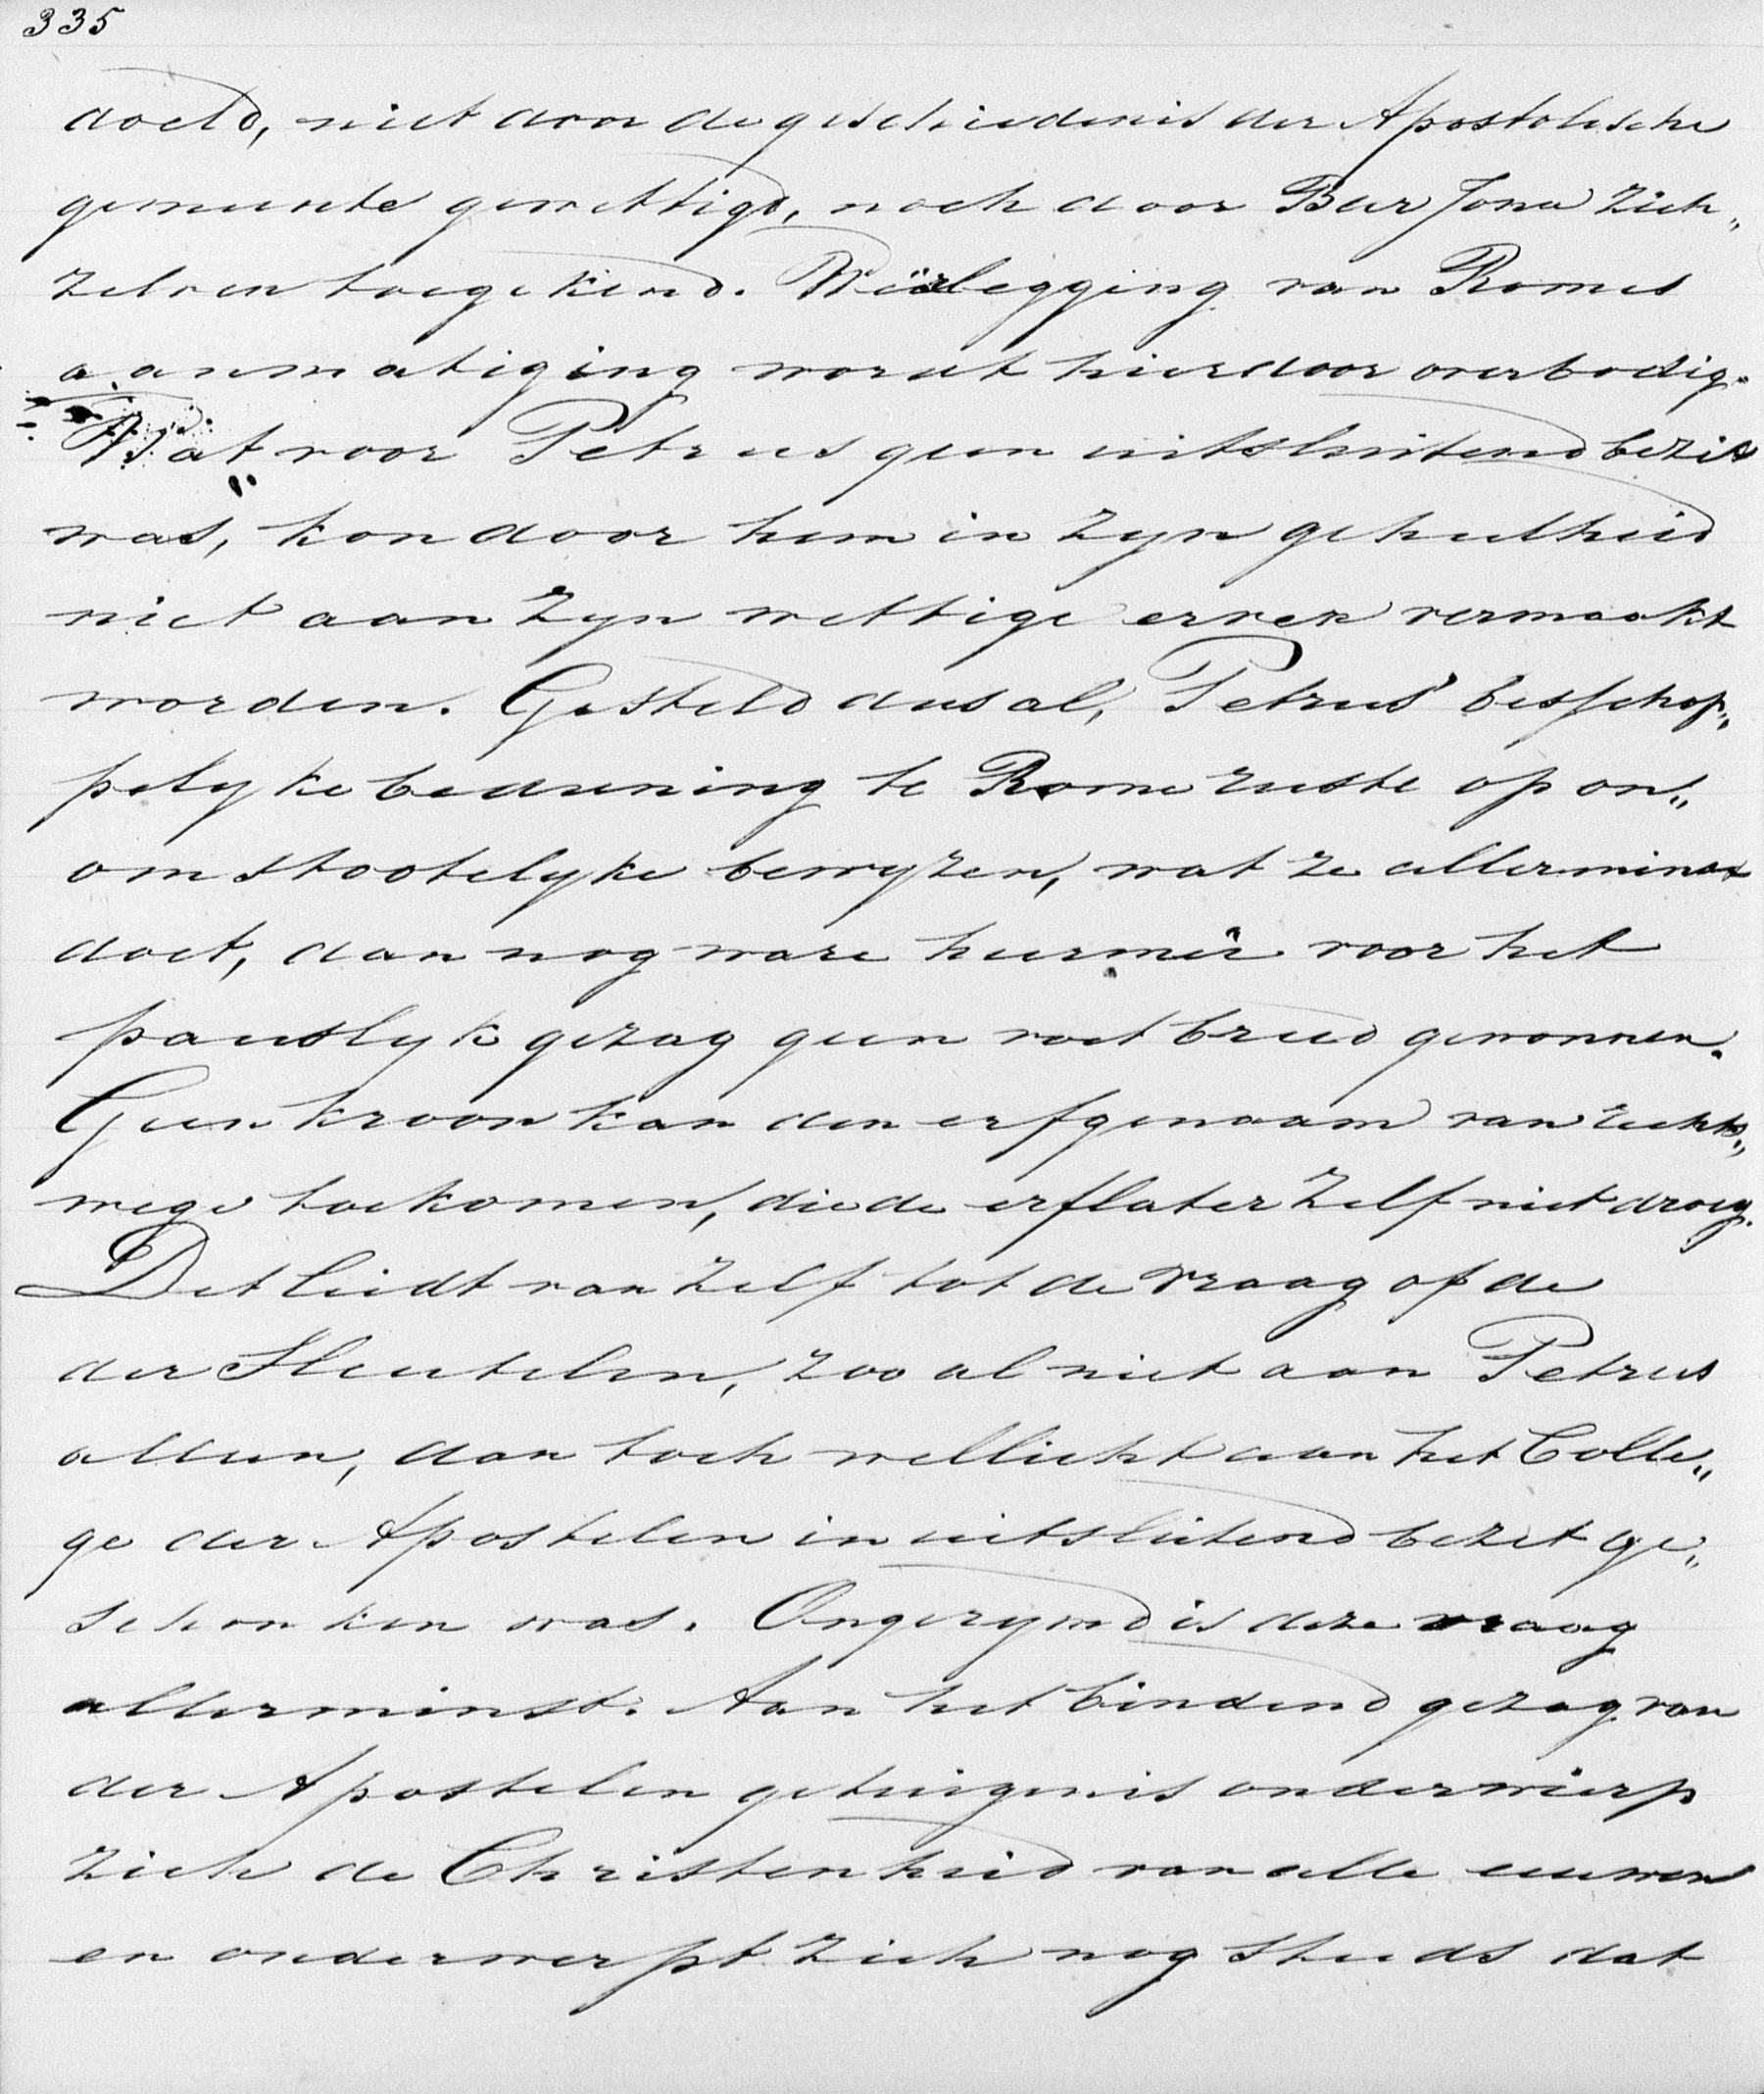 335
doeld, niet door de geschiedenis der Apostolische
gemeente gewettigd, noch door Bar Jona zich„
zelven toegekend. Weêrlegging van Romes
aanmatiging wordt hierdoor overbodig.
Wat voor Petrus geen uitsluitend bezit
was, kon door hem in zyn geheelheid
niet aan zyn wettige erven vermaakt
worden. Gesteld dus al, Petrus' bisschop„
pelyke bediening te Rome ruste op on„
omstootelyke bewyzen, wat ze allerminst
doet, dan nog ware hiermeê voor het
pauslyk gezag geen voet breed gewonnen.
Geen kroon kan den erfgenaam van rechts„
wege toekomen, die de erflater zelf niet droeg.
Dit leidt van zelf tot de vraag of de
der Sleutelen, zoo al niet aan Petrus
alleen, dan toch wellicht aan het Colle„
ge der Apostelen in uitsluitend bezit ge„
schonken was. Ongerymd is deze vraag
allerminst. Aan het bindend gezag van
der Apostelen getuigenis onderwierp
zich de Christenheid van alle eeuwen
en onderwerpt zich nog steeds dat